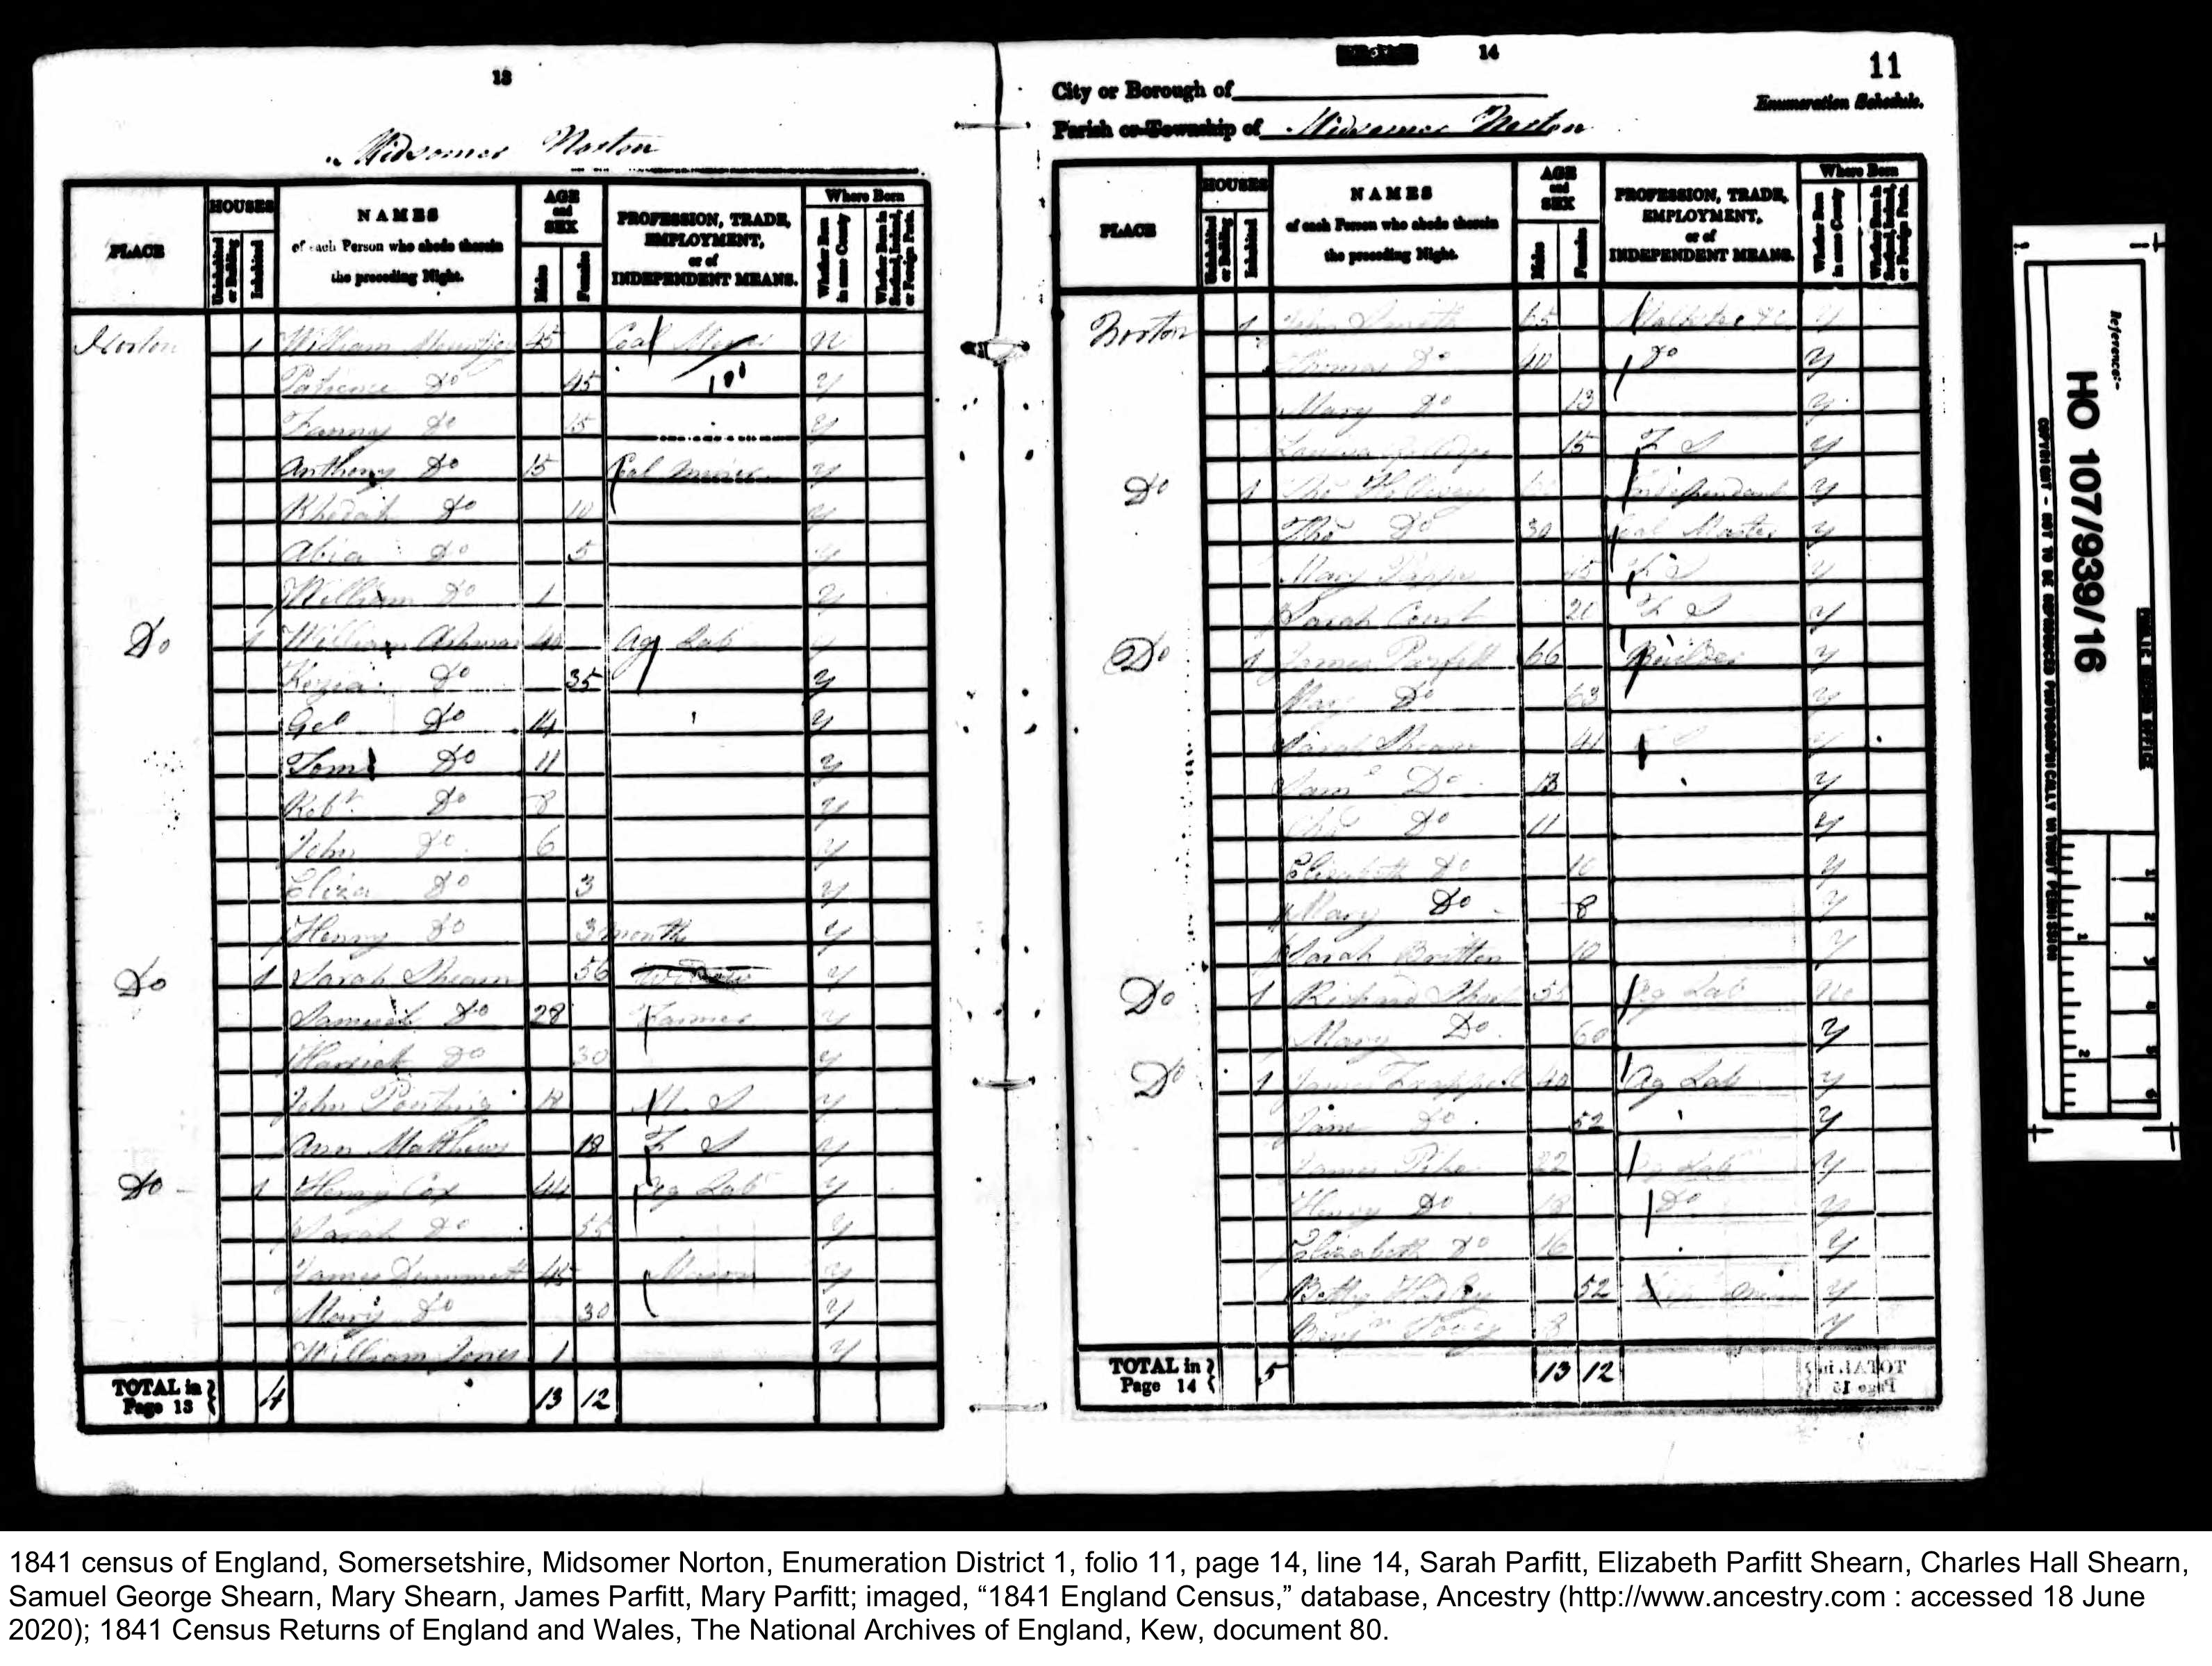 13
Midsomer Norton
PLACE
HOUSES
Uninhabited or Building
Inhabited
NAMES
of each Person who abode therein
the preceding Night.
AGE and SEX
Males
Females
PROFESSION, TRADE, EMPLOYMENT, or of INDEPENDENT MEANS.
Where Born
Whether Born in same County
Whether Born in Scotland, Ireland, or Foreign Parts.
Norton 1 William 45 Coal N
Patience Do 45 Y
Fanny Do 15 Y
Anthony Do 15 Coal Miner Y
Do 10 Y
Abia Do 5 Y
William Do 1 Y
Do 1 William Ashman 40 Ag Lab Y
Kezia Do 35 Y
Geo Do 14 Y
Tom Do 11 Y
Robt Do 8 Y
John Do 6 Y
Eliza Do 3 Y
Henry Do 3 month Y
Do 1 Sarah Shearn 56 Y
Samuel Do 28 Farmer Y
Harriet Do 30 Y
John Ponting 18 M S Y
Ann Matthews 18 F S Y
Do 1 Henry Cox 44 Ag Lab Y
Sarah Do 55 Y
James 45 Mason Y
Mary Do 30 Y
William Jones 1 Y
TOTAL in Page 13 4 13 12
14
11
City or Borough of
Enumeration Schedule.
Parish or Township of Midsomer Norton
PLACE
HOUSES
Uninhabited or Building
Inhabited
NAMES
of each Person who abode therein
the preceding Night.
AGE and SEX
Males
Females
PROFESSION, TRADE, EMPLOYMENT, or of INDEPENDENT MEANS.
Where Born
Whether Born in same County
Whether Born in Scotland, Ireland, or Foreign Parts.
Norton 1 John Smith 65 Y
Thomas Do 40 Do Y
Mary Do 13 Y
15 F S Y
Do 1 Thos Independent Y
Thos Do 30 Coal Master Y
Mary 15 F S Y
Sarah Court 20 F S Y
Do 1 James Parfitt 66 Builder Y
Mary Do 63 Y
Sarah Shearn 41 Y
Sam Do 13 Y
Chs Do 11 Y
Elizabeth Do 10 Y
Mary Do 8 Y
Sarah Britten 10 Y
Do 1 Richard 55 Ag Lab No
Mary Do 60 Y
Do 1 James 40 Ag Lab Y
Jane Do 52 Y
James 22 Ag Lab Y
Henry Do 18 Do Y
Elizabeth Do 16 Y
Betty 52 Y
Benjn 8 Y
TOTAL in Page 14 5 13 12
Reference:-
HO 107/939/16
PUBLIC RECORD OFFICE
COPYRIGHT - NOT TO BE REPRODUCED PHOTOGRAPHICALLY WITHOUT PERMISSION
1841 census of England, Somersetshire, Midsomer Norton, Enumeration District 1, folio 11, page 14, line 14, Sarah Parfitt, Elizabeth Parfitt Shearn, Charles Hall Shearn,
Samuel George Shearn, Mary Shearn, James Parfitt, Mary Parfitt; imaged, “1841 England Census,” database, Ancestry (http://www.ancestry.com : accessed 18 June
2020); 1841 Census Returns of England and Wales, The National Archives of England, Kew, document 80.